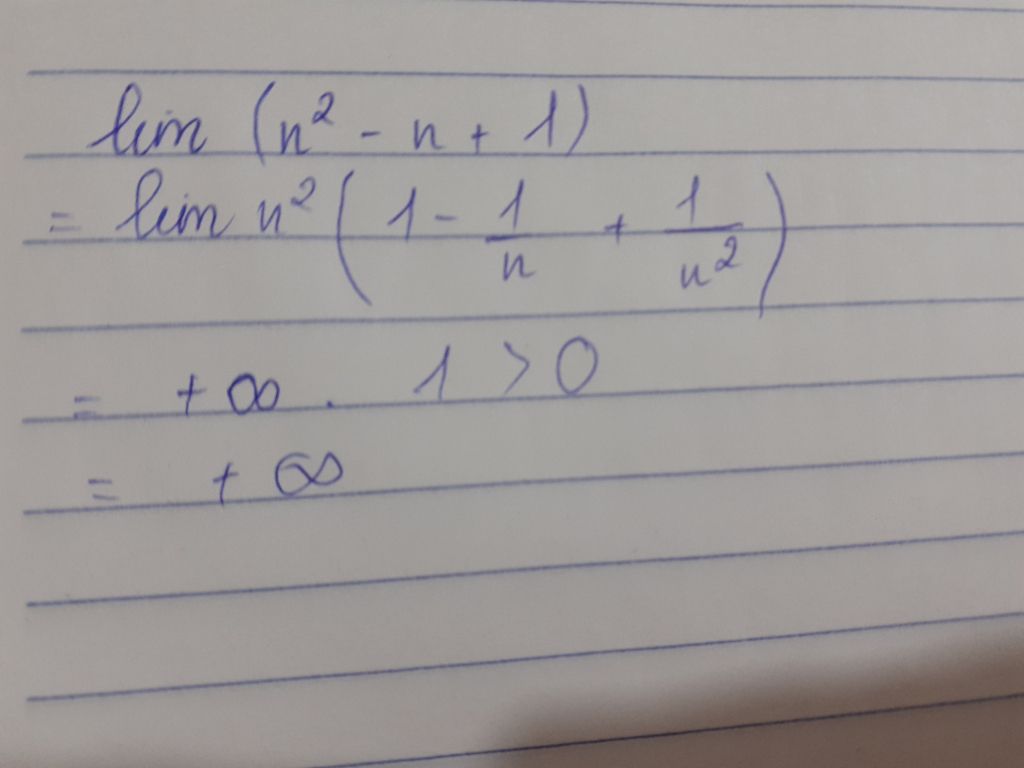 lim (n² - n + 1)
= lim n² ( 1 - 1/n + 1/n² )
= +∞ . 1 > 0
= +∞